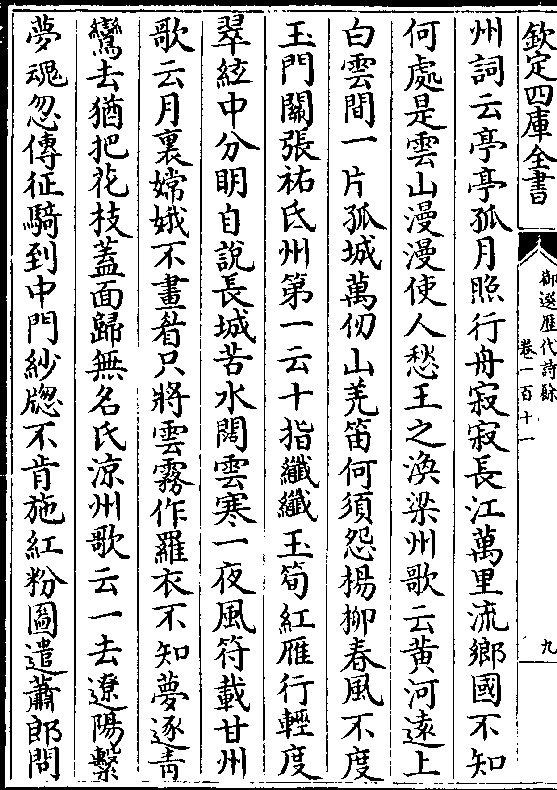 欽定四庫全書
御選歴代詩餘
卷一百十一
九
州詞云亭亭孤月照行舟寂寂長江萬里流鄉國不知
何處是雲山漫漫使人愁王之渙梁州歌云黄河遠上
白雲間一片孤城萬仞山羌笛何須怨楊柳春風不度
玉門關張祜氐州第一云十指纖纖玉筍紅雁行輕度
翠絃中分明自說長城苦水闊雲寒一夜風符載甘州
歌云月裏嫦娥不畫眉只將雲霧作羅衣不知夢逐青
鸞去猶把花枝蓋面歸無名氏涼州歌云一去遼陽繫
夢魂忽傳征騎到中門紗牕不肯施紅粉圖遣蕭郎問